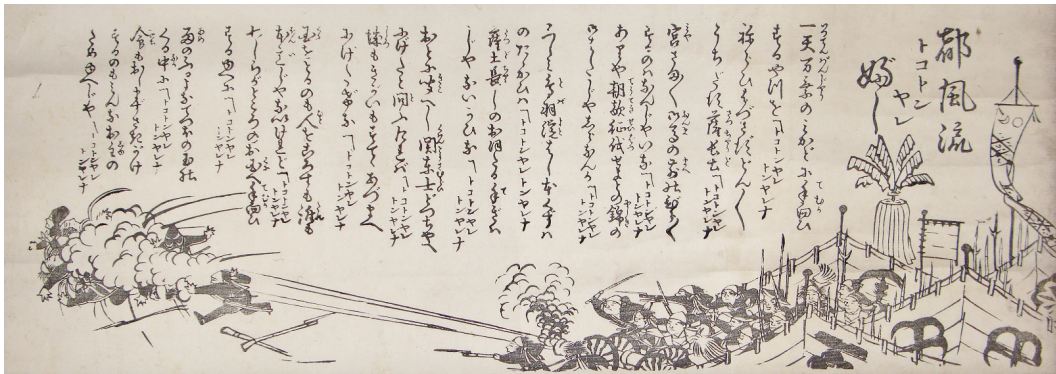 都風流
トコトンヤレ
婦し
一天万乗のみかどに手向ひ
するやつを 〽トコトンヤレトンヤレナ
ねらひはづさずどん〱
うちだす薩長土 〽トコトンヤレトンヤレナ
宮さま〱御馬の前のびら〱
するのはなんじやいな 〽トコトンヤレトンヤレナ
ありや朝敵征伐せよとの錦の
御はたじやしらなんか 〽トコトンヤレトンヤレナ
ふしみ鳥羽淀はし本くずは
のたゝかひは 〽トコトンヤレトンヤレナ
薩土長しのおほたる手ぎは
じやないかいな 〽トコトンヤレトンヤレナ
おとに聞へし関東士どつちやへ
にげたと問ふたれば 〽トコトンヤレトンヤレナ
城もきがいもすてゝあづまへ
にげたげな 〽トコトンヤレトンヤレナ
国をとるのも人をころすも誰も
本意じやないけれど 〽トコトンヤレトンヤレナ
わしらがところのお国へ手向ひ
するゆへに 〽トコトンヤレトンヤレナ
雨のふるよなてつぽの玉の
くる中に 〽トコトンヤレトンヤレナ
命もおしまずさきがけ
するのもみんなおぬしの
ためゆへじや 〽トコトンヤレトンヤレナ